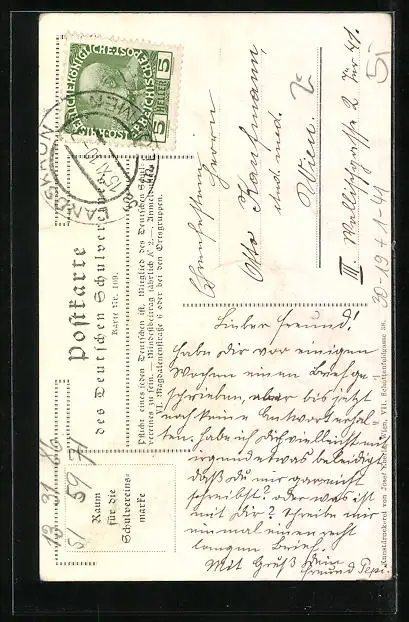 Postkarte
des Deutschen Schulvereines
Karte Nr. 169.
Pflicht eines jeden Deutschen ist, Mitglied des Deutschen Schul-
vereines zu sein. — Mindestbeitrag jährlich K 2.— Anmeldungen
VI. Magdalenenstraße 6 oder bei den Ortsgruppen.
Raum
für die
Schulvereins-
marke
5 HELLER 5
15 XI 10
Herrn
Otto Kaufmann,
stud. med.
Wien.
III. Wallischgasse 2 Tür 41.
30-19+1-41
5
Lieber Freund!
Habe Dir vor einigen
Wochen einen Brief ge-
schrieben, aber bis jetzt
noch keine Antwort erhal-
ten. Habe ich Dich vielleicht mit
irgend etwas beleidigt
daß Du mir gar nicht
schreibst? oder was ist
mit Dir? Schreibe mir
einmal einen recht
langen Brief.
Mit Gruß Dein
Freund Pepi.
Kunstdruckerei von Josef Wien, VII.
13 31 86
59 71